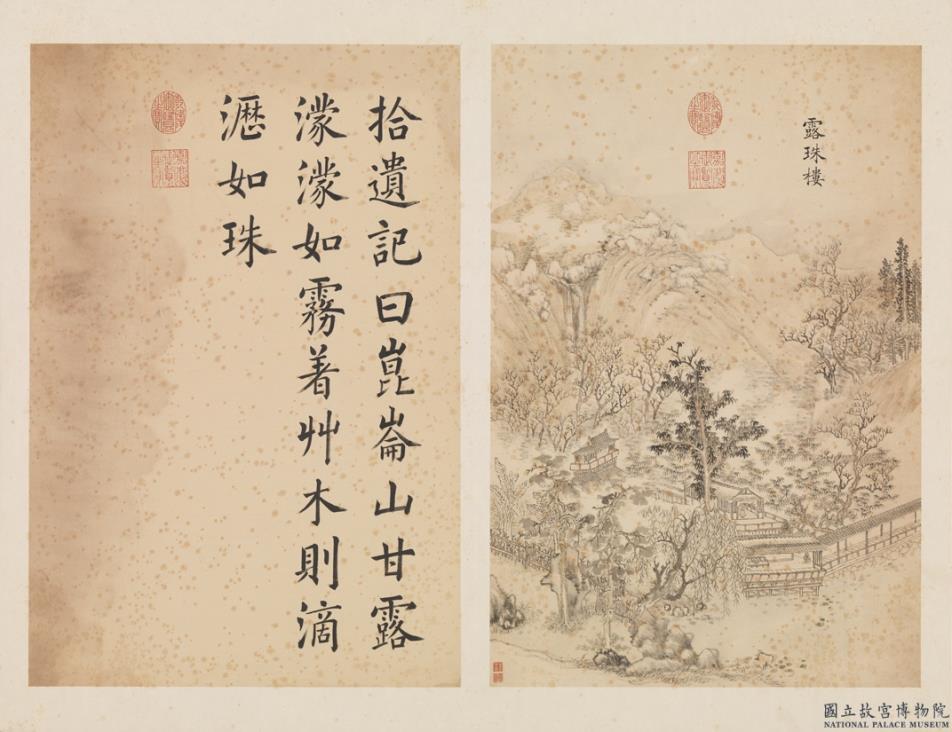 露珠樓
拾遺記曰崑崙山甘露
濛濛如霧着艸木則滴
瀝如珠
國立故宮博物院
NATIONAL PALACE MUSEUM